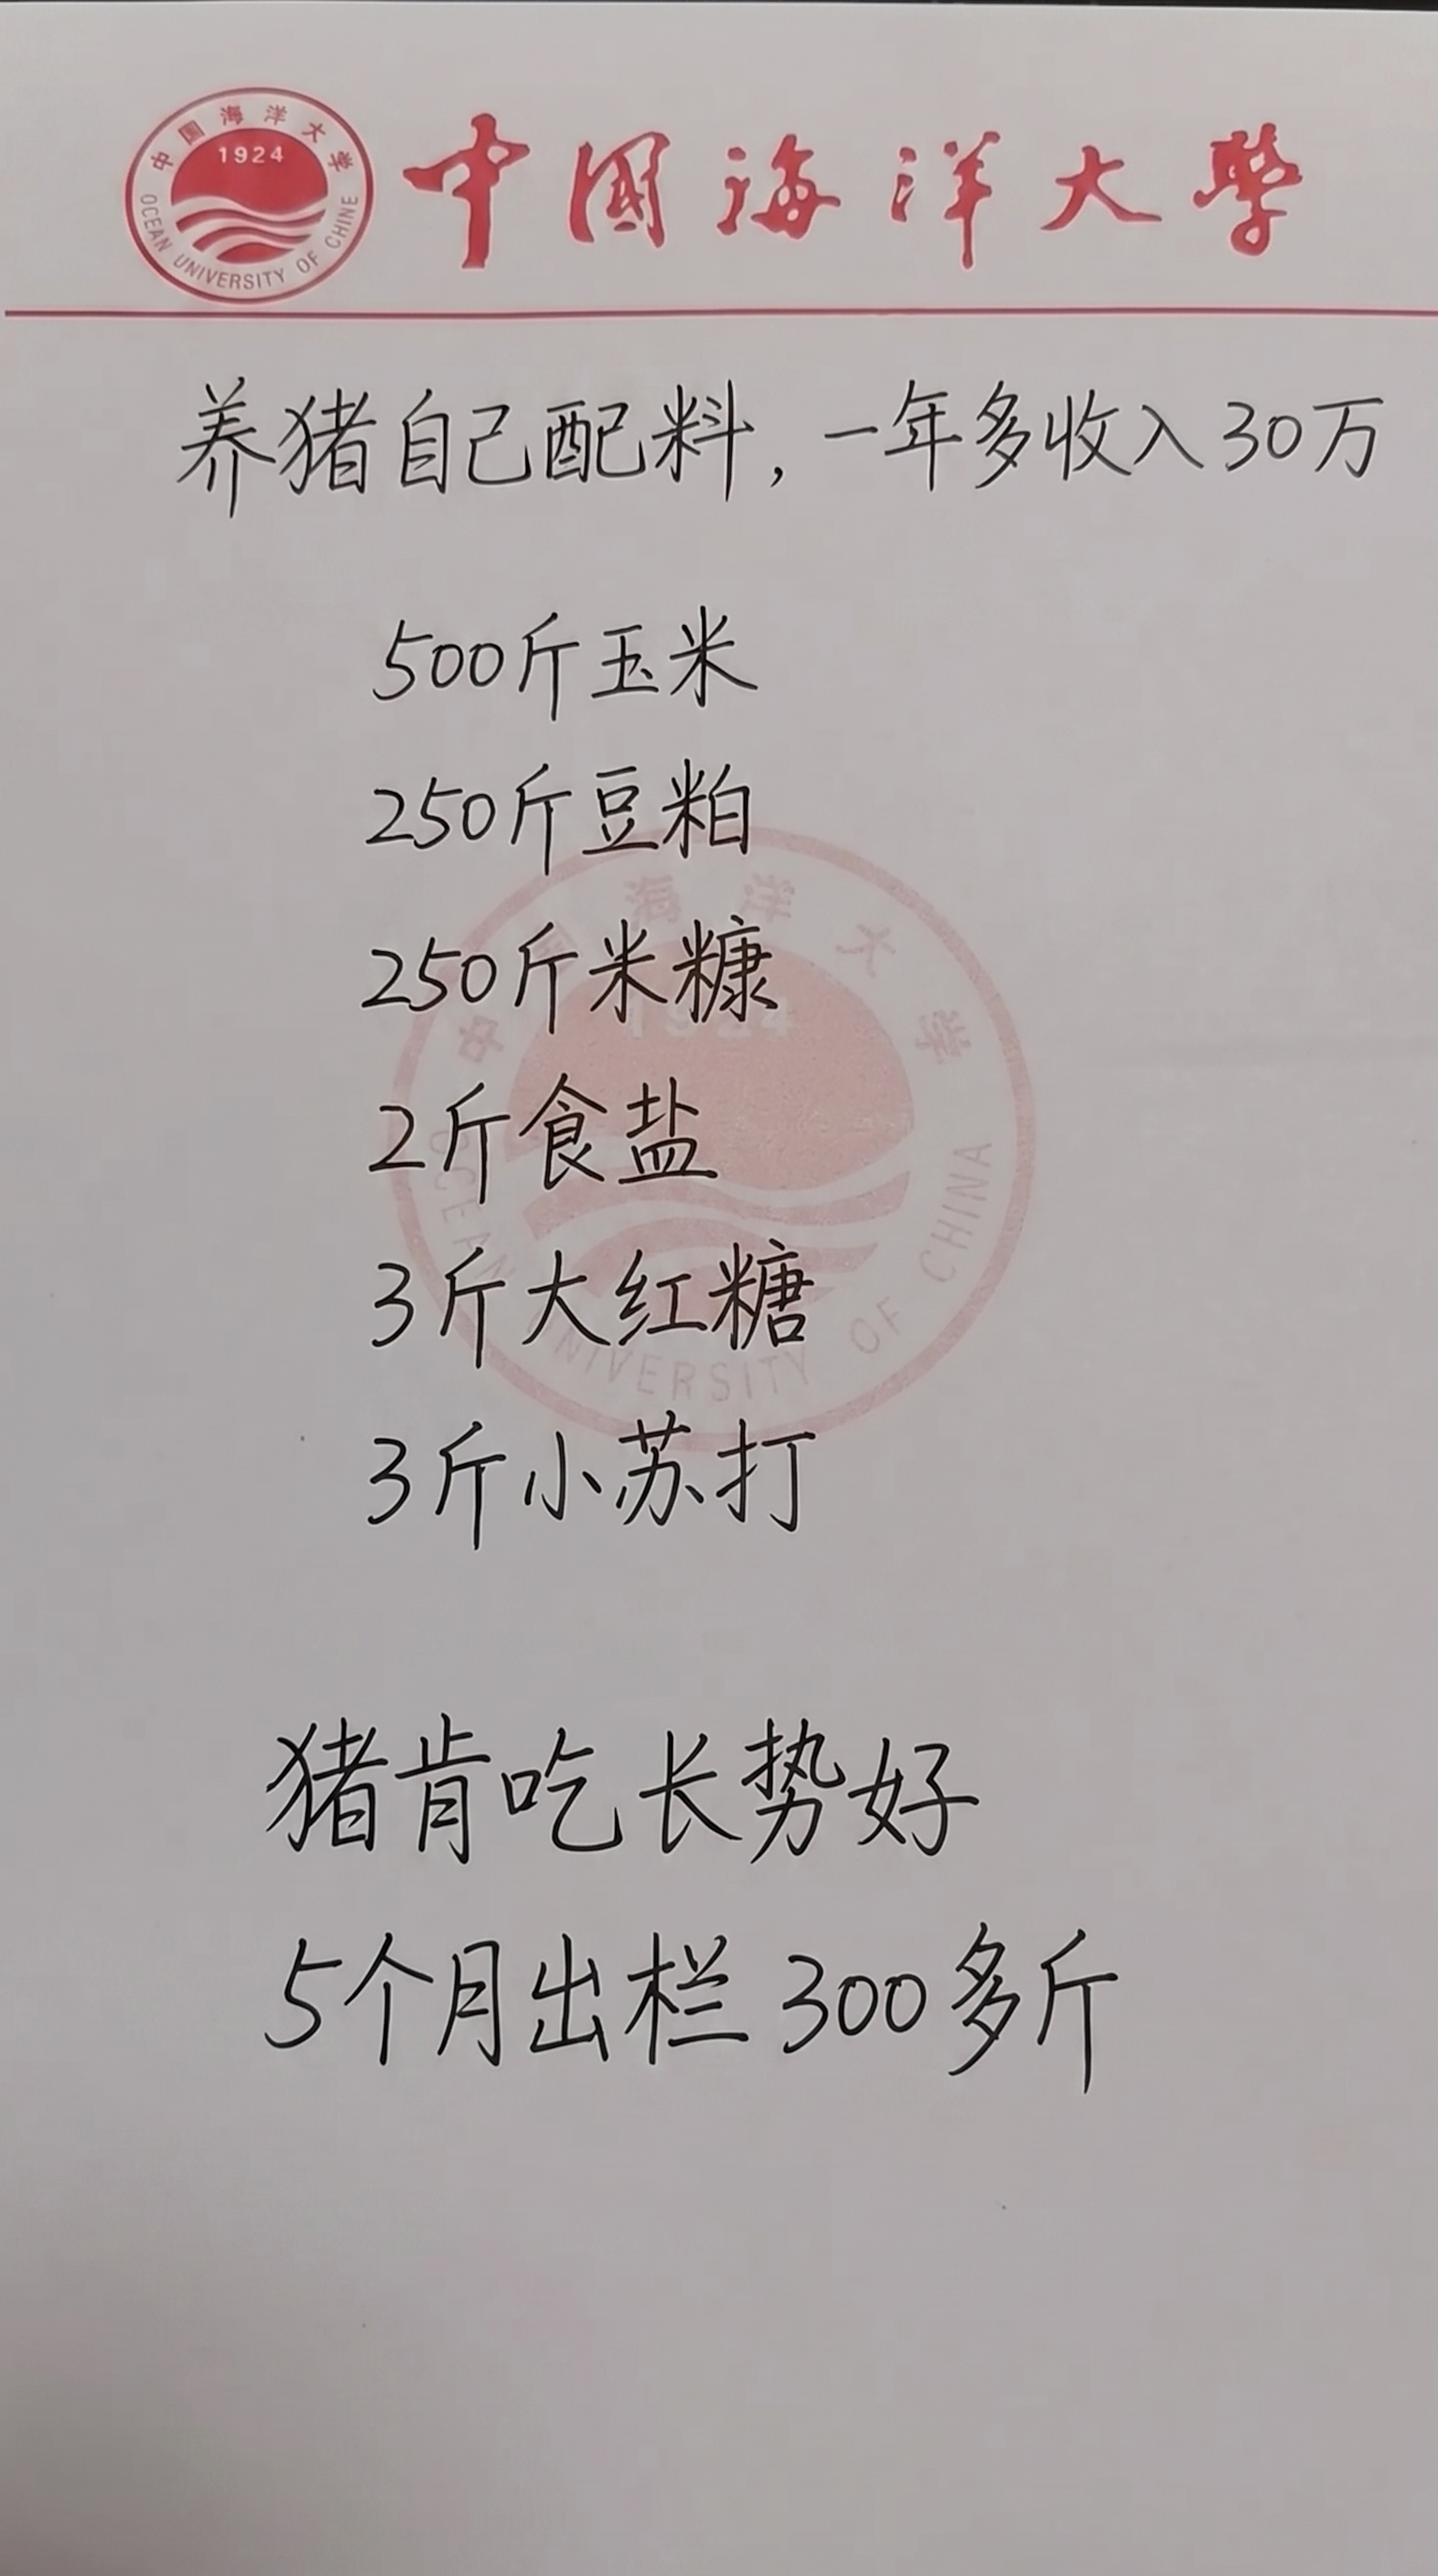 中国海洋大学
1924
OCEAN UNIVERSITY OF CHINE
中國海洋大學
养猪自己配料，一年多收入30万
500斤玉米
250斤豆粕
250斤米糠
2斤食盐
3斤大红糖
3斤小苏打
中国海洋大学
1924
OCEAN UNIVERSITY OF CHINA
猪肯吃长势好
5个月出栏300多斤